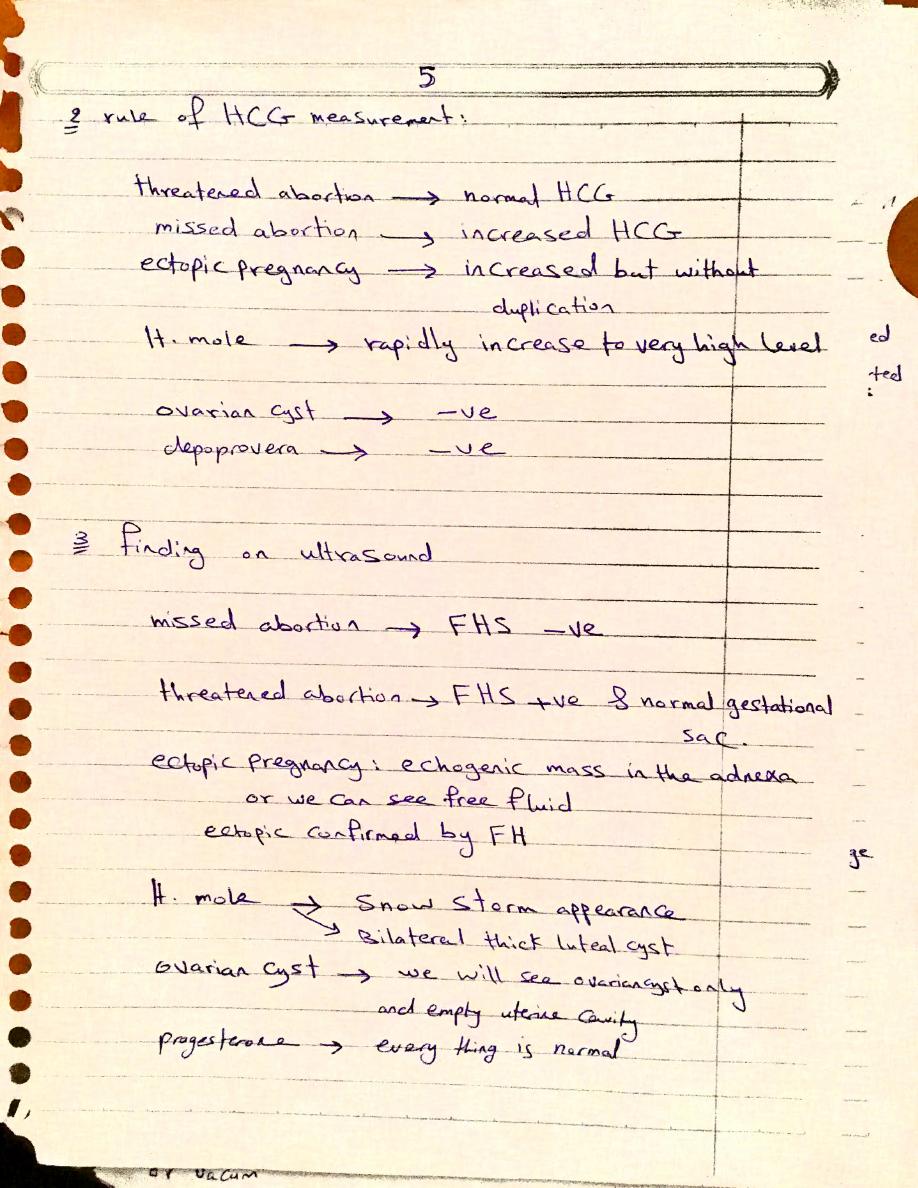 5
2 rule of HCG measurement:
threatened abortion → normal HCG
missed abortion → increased HCG
ectopic pregnancy → increased but without
duplication
H. mole → rapidly increase to very high level
ed
ted
:
ovarian cyst → -ve
depoprovera → -ve
3 finding on ultrasound
missed abortion → FHS -ve
threatened abortion → FHS +ve & normal gestational
sac.
ectopic pregnancy: echogenic mass in the adnexa
or we can see free fluid
ectopic confirmed by FH
ge
H. mole → Snow Storm appearance
↘ Bilateral thick luteal cyst
ovarian cyst → we will see ovarian cyst only
and empty uterine cavity
progesterone → every thing is normal
or vacum